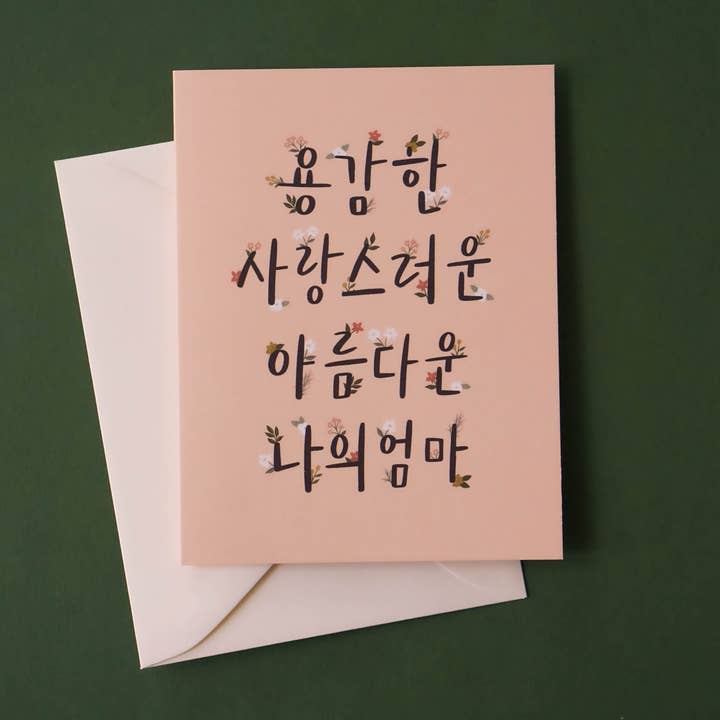 용감한
사랑스러운
아름다운
나의엄마